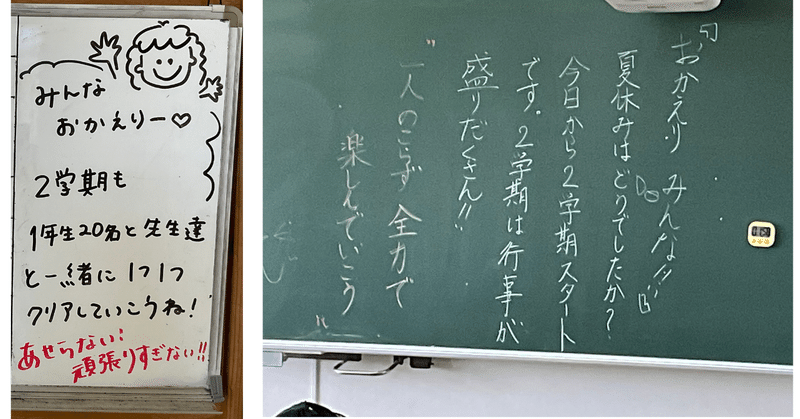 みんな
おかえりー♡
2学期も
1年生20名と先生達
と一緒に1つ1つ
クリアしていこうね!
あせらない!
頑張りすぎない!!
おかえり みんな!!
夏休みは どうでしたか?
今日から2学期スタート
です。2学期は行事が
盛りだくさん!!
"一人のこらず 全力で
楽しんでいこう"